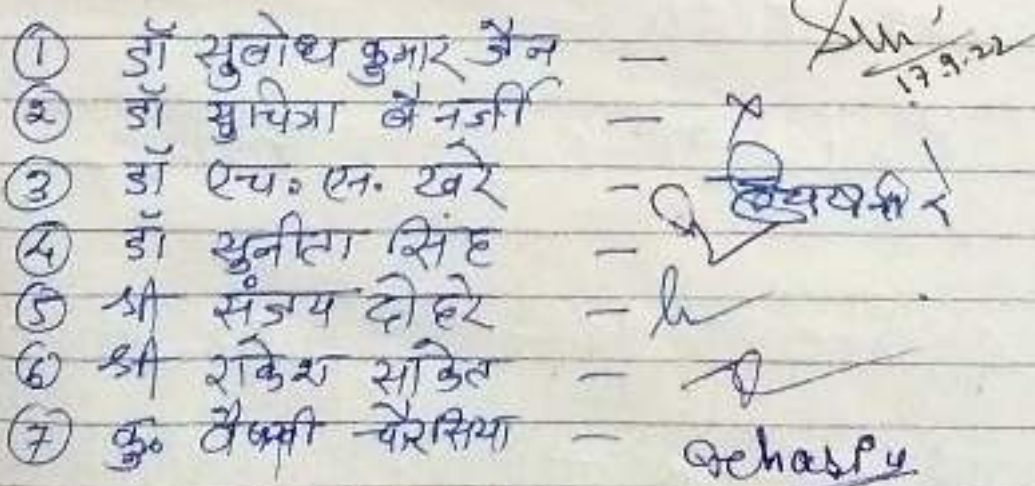 ① डॉ सुबोध कुमार जैन —
17.9.22
② डॉ सुचित्रा बैनर्जी —
③ डॉ एच. एन. खरे —
④ डॉ सुनीता सिंह —
⑤ श्री संजय दोहरे —
⑥ श्री राकेश साकेत —
⑦ कु. वैष्णवी चौरसिया —